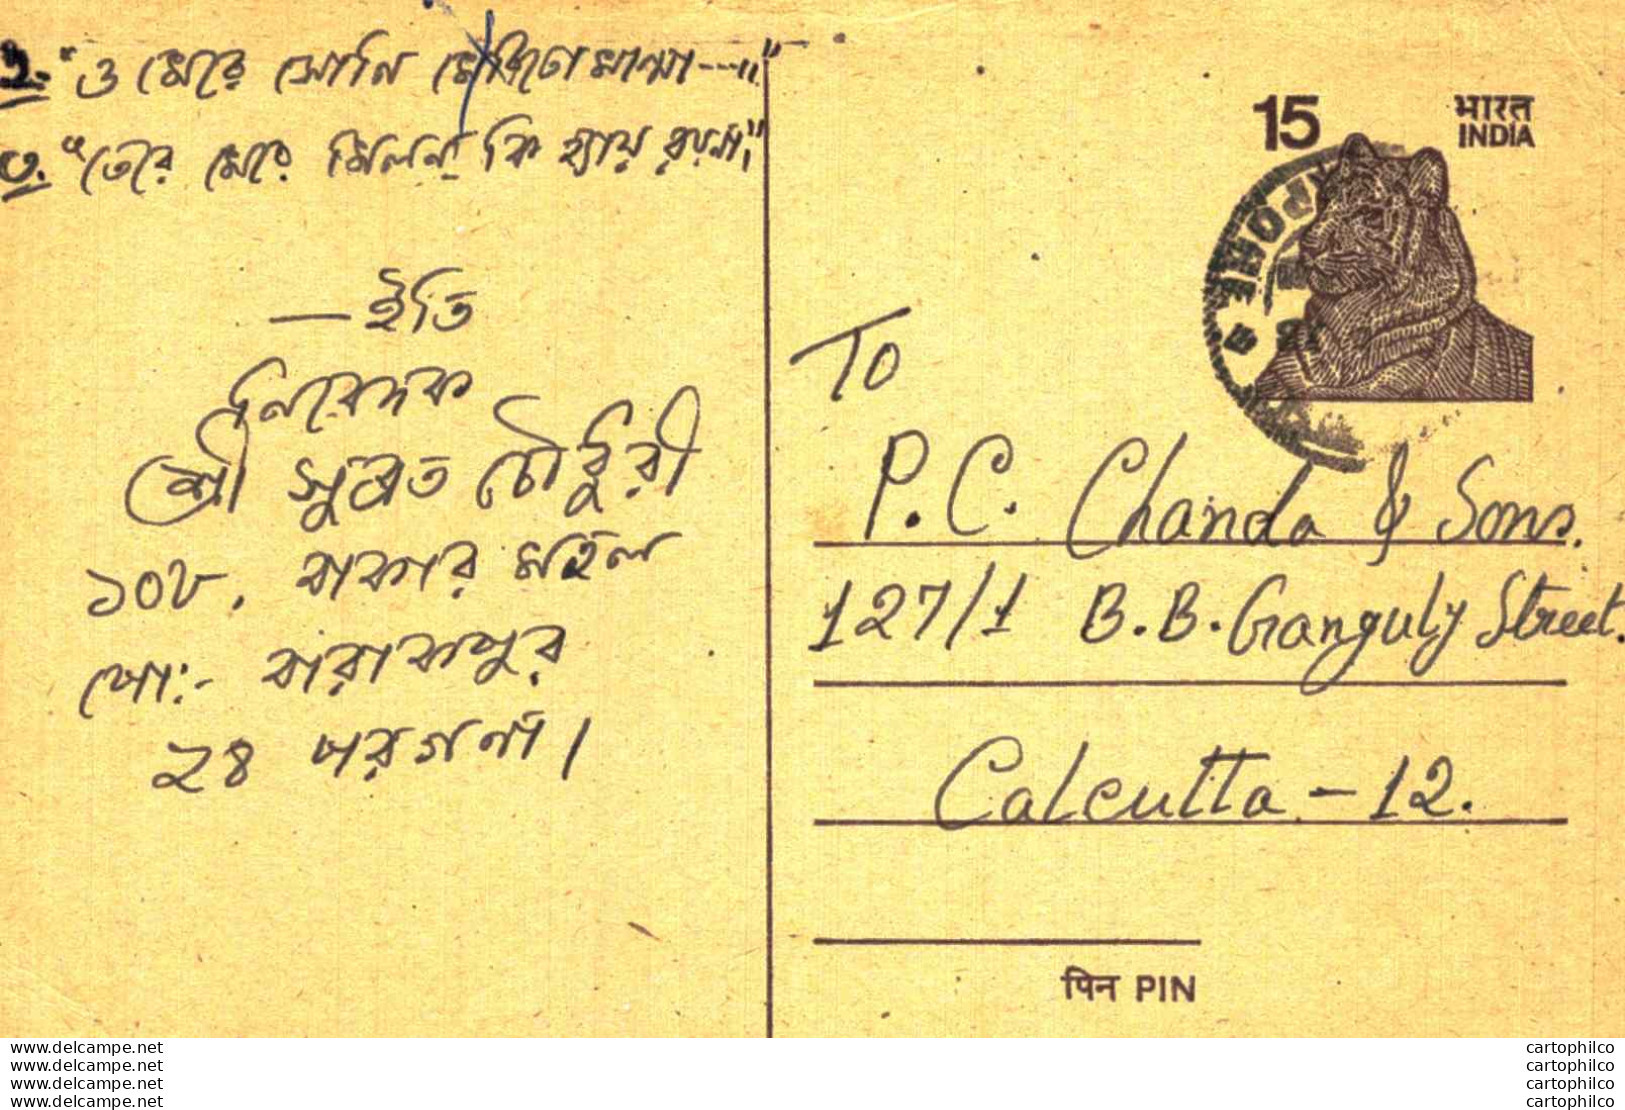 ২. "ও মেরে সোনি মেরি তোমান্না---॥"
৩. "তেরে মেরে মিলন কি হ্যায় রয়না।"
— ইতি
নিবেদক
শ্রী সুব্রত চৌধুরী
১০৮, বাকার মহল
পোঃ- বারাকপুর
২৪ পরগনা।
15
भारत
INDIA
To
P. C. Chanda & Sons.
127/1 B. B. Ganguly Street.
Calcutta - 12.
पिन PIN
www.delcampe.net
www.delcampe.net
www.delcampe.net
www.delcampe.net
cartophilco
cartophilco
cartophilco
cartophilco